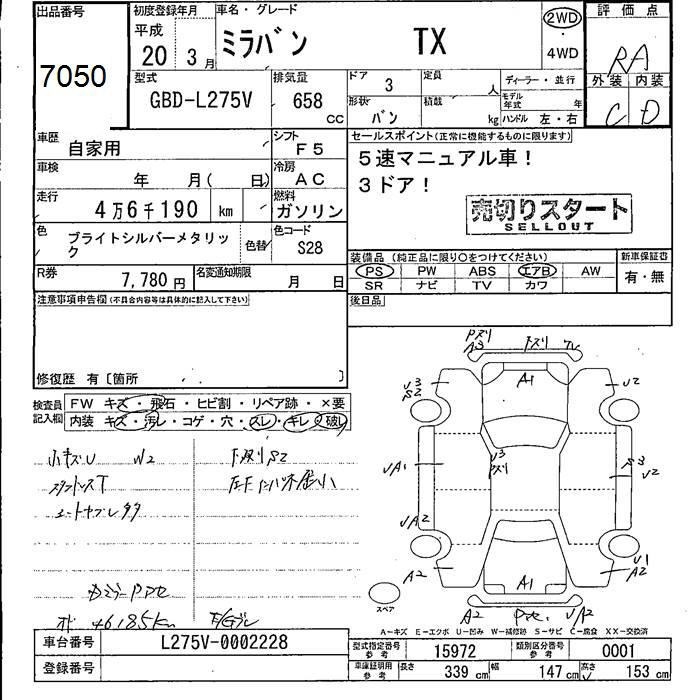 出品番号
7050
初度登録年月
平成
20 3月
車名・グレード
ミラバン TX
2WD
・
4WD
評価点
RA
外装 内装
C D
型式
GBD-L275V
排気量
658
cc
ドア
3
定員
人
ディーラー・並行
形状
バン
積載
kg
モデル年式 年
ハンドル 左・右
車歴
自家用
シフト
F5
車検
年 月( 日)
冷房
AC
走行
4万6千190 km
燃料
ガソリン
色
ブライトシルバーメタリック
色替
色コード
S28
R券
7,780円
名変通知期限
月 日
セールスポイント(正常に機能するものに限ります)
5速マニュアル車!
3ドア!
売切りスタート
SELLOUT
装備品 (純正品に限り○をつけてください)
PS PW ABS エアB AW
SR ナビ TV カワ
新車保証書
有・無
後日品
注意事項申告欄(不具合内容等は具体的に記入して下さい)
修復歴 有〔箇所 〕
検査員記入欄
FW キズ・飛石・ヒビ割・リペア跡・×要
内装 キズ・汚レ・コゲ・穴・スレ・キレ・破レ
W2
下廻りS2
46185km
A3
A1
U3
S2
U2
U3
S3
U2
A2
A1
U1
A2
A2
スペア
A-キズ E-エクボ U-凹み W-補修跡 S-サビ C-腐食 XX-交換済
車台番号
L275V-0002228
登録番号
型式指定番号参考
15972
類別区分番号参考
0001
車庫証明用参考
長さ 339 cm
幅 147 cm
高さ 153 cm